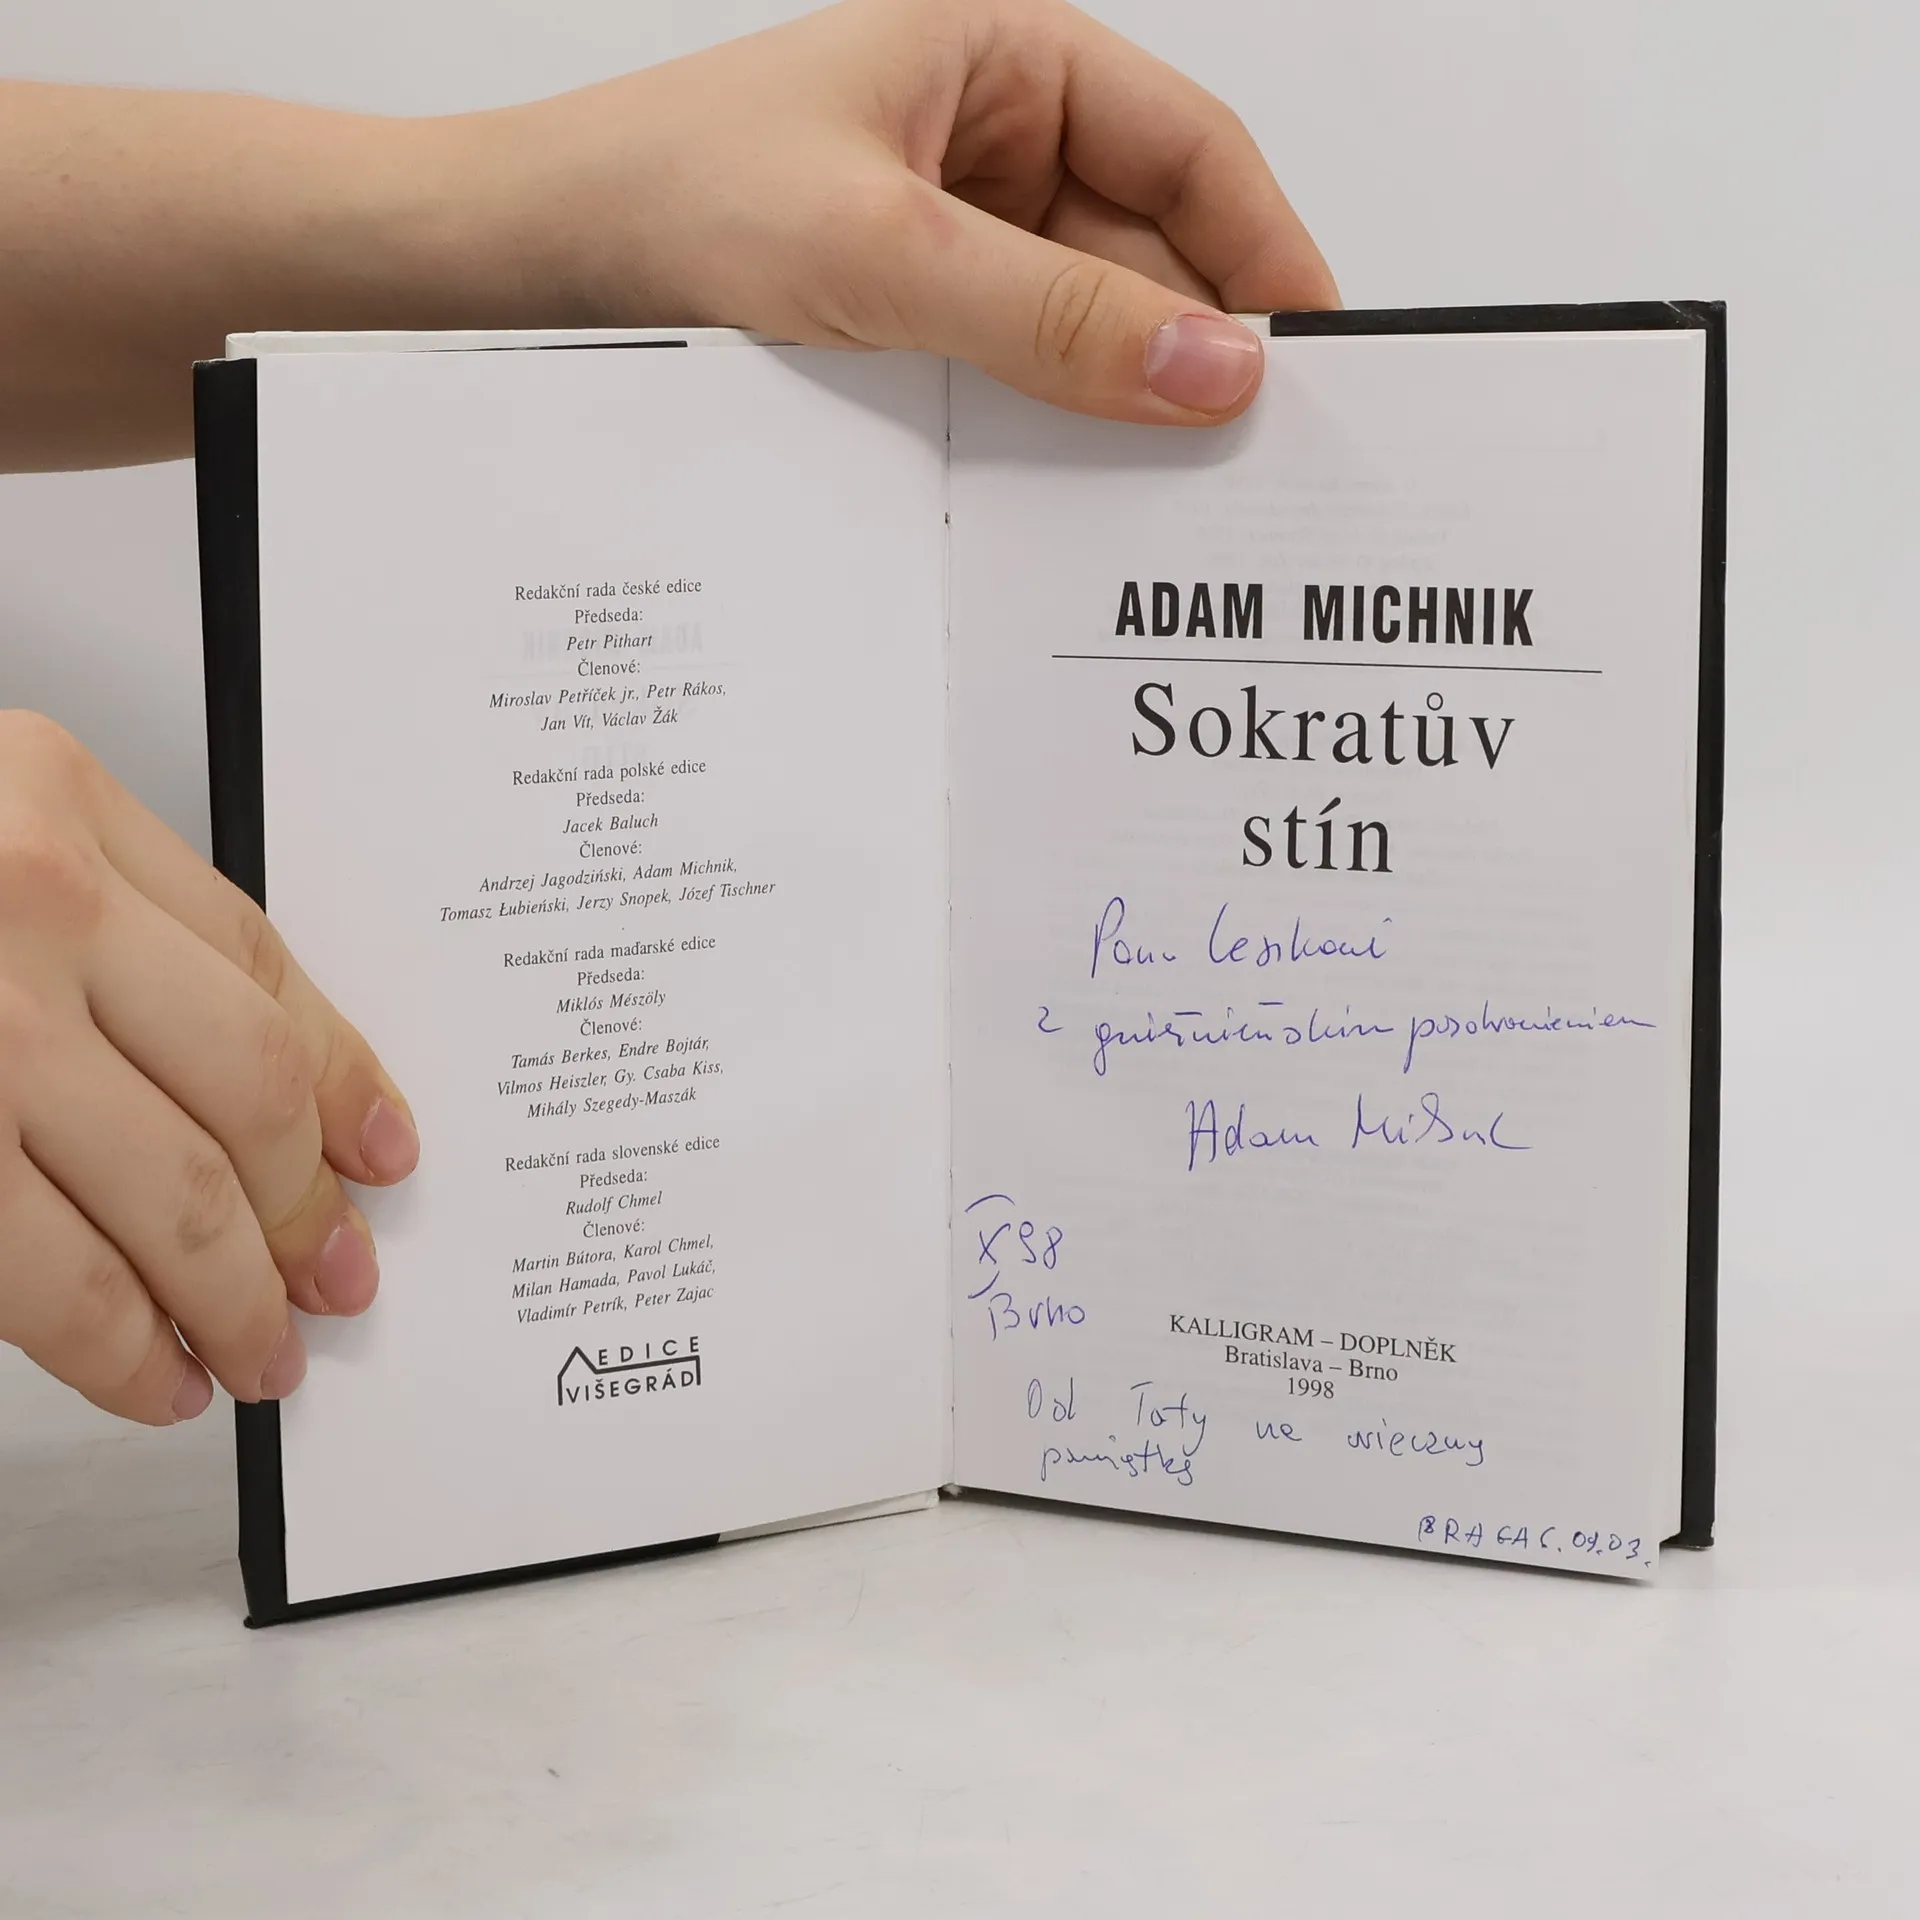 Redakční rada české edice
Předseda:
Petr Pithart
Členové:
Miroslav Petříček jr., Petr Rákos,
Jan Vít, Václav Žák
Redakční rada polské edice
Předseda:
Jacek Baluch
Členové:
Andrzej Jagodziński, Adam Michnik,
Tomasz Łubieński, Jerzy Snopek, Józef Tischner
Redakční rada maďarské edice
Předseda:
Miklós Mészöly
Členové:
Tamás Berkes, Endre Bojtár,
Vilmos Heiszler, Gy. Csaba Kiss,
Mihály Szegedy-Maszák
Redakční rada slovenské edice
Předseda:
Rudolf Chmel
Členové:
Martin Bútora, Karol Chmel,
Milan Hamada, Pavol Lukáč,
Vladimír Petrík, Peter Zajac
EDICE
VIŠEGRÁD
ADAM MICHNIK
Sokratův
stín
Panu
z pozdrowieniem
Adam Michnik
X 98
Brno
KALLIGRAM – DOPLNĚK
Bratislava – Brno
1998
Od Taty na wieczny
pamiątkę
09.03.